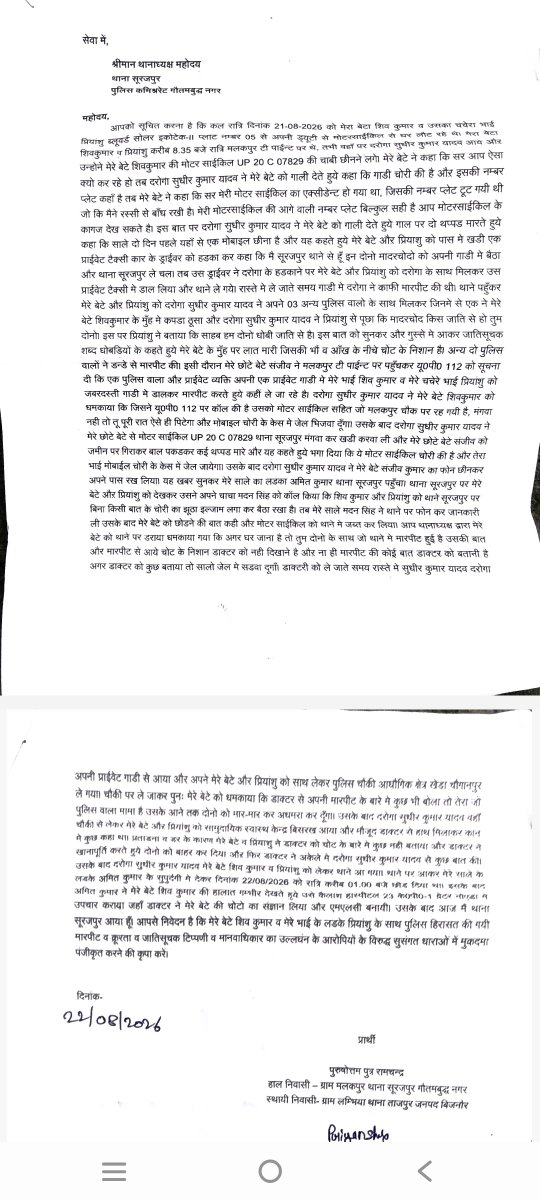 सेवा में,
श्रीमान थानाध्यक्ष महोदय
थाना सूरजपुर
पुलिस कमिश्नरेट गौतमबुद्ध नगर
महोदय,
आपको सूचित करना है कि कल रात्रि दिनांक 21-08-2026 को मेरा बेटा शिव कुमार व उसका चचेरा भाई
प्रियांशु ब्लूवर्ड सोलर इकोटेक-II प्लाट नम्बर 05 से अपनी ड्यूटी से मोटरसाईकिल से घर लौट रहे थे। मेरा बेटा
शिवकुमार व प्रियांशु करीब 8.35 बजे रात्रि मलकपुर टी पाईन्ट पर थे, तभी वहाँ पर दरोगा सुधीर कुमार यादव आये और
उन्होने मेरे बेटे शिवकुमार की मोटर साईकिल UP 20 C 07829 की चाबी छीनने लगे। मेरे बेटे ने कहा कि सर आप ऐसा
क्यो कर रहे हो तब दरोगा सुधीर कुमार यादव ने मेरे बेटे को गाली देते हुये कहा कि गाडी चोरी की है और इसकी नम्बर
प्लेट कहाँ है तब मेरे बेटे ने कहा कि सर मेरी मोटर साईकिल का एक्सीडेन्ट हो गया था, जिसकी नम्बर प्लेट टूट गयी थी
जो कि मैने रस्सी से बाँध रखी है। मेरी मोटरसाईकिल की आगे वाली नम्बर प्लेट बिल्कुल सही है आप मोटरसाईकिल के
कागज देख सकते है। इस बात पर दरोगा सुधीर कुमार यादव ने मेरे बेटे को गाली देते हुये गाल पर दो थप्पड मारते हुये
कहा कि साले दो दिन पहले यहाँ से एक मोबाइल छीना है और यह कहते हुये मेरे बेटे और प्रियाशु को पास मे खडी एक
प्राईवेट टैक्सी कार के ड्राईवर को हडका कर कहा कि मै सूरजपुर थाने से हूँ इन दोनो मादरचोदो को अपनी गाडी मे बैठा
और थाना सूरजपुर ले चल। तब उस ड्राईवर ने दरोगा के हडकाने पर मेरे बेटे और प्रियांशु को दरोगा के साथ मिलकर उस
प्राईवेट टैक्सी मे डाल लिया और थाने ले गये। रास्ते मे ले जाते समय गाडी मे दरोगा ने काफी मारपीट की थी। थाने पहुँकर
मेरे बेटे और प्रियांशु को दरोगा सुधीर कुमार यादव ने अपने 03 अन्य पुलिस वालो के साथ मिलकर जिनमे से एक ने मेरे
बेटे शिवकुमार के मुँह मे कपडा ठूसा और दरोगा सुधीर कुमार यादव ने प्रियांशु से पूछा कि मादरचोद किस जाति से हो तुम
दोनो। इस पर प्रियांशु ने बताया कि साहब हम दोनो धोबी जाति से है। इस बात को सुनकर और गुस्से मे आकर जातिसूचक
शब्द धोबडियों के कहते हुये मेरे बेटे के मुँह पर लात मारी जिसकी भौं व आँख के नीचे चोट के निशान है। अन्य दो पुलिस
वालों ने डन्डे से मारपीट की। इसी दौरान मेरे छोटे बेटे संजीव ने मलकपुर टी पाईन्ट पर पहुँचकर यू0पी0 112 को सूचना
दी कि एक पुलिस वाला और प्राईवेट व्यक्ति अपनी एक प्राईवेट गाडी मे मेरे भाई शिव कुमार व मेरे चचेरे भाई प्रियांशु को
जबरदस्ती गाडी मे डालकर मारपीट करते हुये कहीं ले जा रहे है। दरोगा सुधीर कुमार यादव ने मेरे बेटे शिवकुमार को
धमकाया कि जिसने यू0पी0 112 पर कॉल की है उसको मोटर साईकिल सहित जो मलकपुर चौक पर रह गयी है, मंगवा
नही तो तू पूरी रात ऐसे ही पिटेगा और मोबाइल चोरी के केस मे जेल भिजवा दूँगा। उसके बाद दरोगा सुधीर कुमार यादव ने
मेरे छोटे बेटे से मोटर साईकिल UP 20 C 07829 थाना सूरजपुर मंगवा कर खडी करवा ली और मेरे छोटे बेटे संजीव को
जमीन पर गिराकर बाल पकडकर कई थप्पड मारे और यह कहते हुये भगा दिया कि ये मोटर साईकिल चोरी की है और तेरा
भाई मोबाईल चोरी के केस मे जेल जायेगा। उसके बाद दरोगा सुधीर कुमार यादव ने मेरे बेटे संजीव कुमार का फोन छीनकर
अपने पास रख लिया। यह खबर सुनकर मेरे साले का लडका अमित कुमार थाना सूरजपुर पहुँचा। थाना सूरजपुर पर मेरे
बेटे और प्रियांशु को देखकर उसने अपने चाचा मदन सिंह को कॉल किया कि शिव कुमार और प्रियांशु को थाने सूरजपुर पर
बिना किसी बात के चोरी का झूठा इल्जाम लगा कर बैठा रखा है। तब मेरे साले मदन सिंह ने थाने पर फोन कर जानकारी
ली उसके बाद मेरे बेटे को छोडने की बात कही और मोटर साईकिल को थाने मे जब्त कर लिया। आप थानाध्यक्ष द्वारा मेरे
बेटे को थाने पर डराया धमकाया गया कि अगर घर जाना है तो तुम दोनो के साथ जो थाने मे मारपीट हुई है उसकी बात
और मारपीट से आये चोट के निशान डाक्टर को नही दिखाने है और ना ही मारपीट की कोई बात डाक्टर को बतानी है
अगर डाक्टर को कुछ बताया तो सालो जेल मे सडवा दूगाँ। डाक्टरी को ले जाते समय रास्ते मे सुधीर कुमार यादव दरोगा
अपनी प्राईवेट गाडी से आया और अपने मेरे बेटे और प्रियांशु को साथ लेकर पुलिस चौकी आधौगिक क्षेत्र खेडा चौगानपुर
ले गया। चौकी पर ले जाकर पुनः मेरे बेटे को धमकाया कि डाक्टर से अपनी मारपीट के बारे मे कुछ भी बोला तो तेरा जो
पुलिस वाला मामा है उसके आने तक दोनो को मार-मार कर अधमरा कर दूँगा। उसके बाद दरोगा सुधीर कुमार यादव वहाँ
चौकी से लेकर मेरे बेटे और प्रियांशु को सामुदायिक स्वास्थ्य केन्द्र बिसरख आया और मौजूद डाक्टर से हाथ मिलाकर कान
मे कुछ कहा था। प्रताडना व डर के कारण मेरे बेटे व प्रियांशु मे डाक्टर को चोट के बारे मे कुछ नही बताया और डाक्टर ने
खानापूर्ति करते हुये दोनो को बाहर कर दिया और फिर डाक्टर ने अकेले मे दरोगा सुधीर कुमार यादव से कुछ बात की।
उसके बाद दरोगा सुधीर कुमार यादव मेरे बेटे शिव कुमार व प्रियांशु को लेकर थाने आ गया। थाने पर आकर मेरे साले के
लडके अमित कुमार के सुपुर्दगी मे देकर दिनांक 22/08/2026 को रात्रि करीब 01.00 बजे छोड दिया था। इसके बाद
अमित कुमार ने मेरे बेटे शिव कुमार की हालात गम्भीर देखते हुये उसे कैलाश हास्पीटल 23 के0पी0-1 ग्रेटर नोएडा मे
उपचार कराया जहाँ डाक्टर ने मेरे बेटे की चोटो का संज्ञान लिया और एमएलसी बनायी। उसके बाद आज मै थाना
सूरजपुर आया हूँ। आपसे निवेदन है कि मेरे बेटे शिव कुमार व मेरे भाई के लडके प्रियांशु के साथ पुलिस हिरासत की गयी
मारपीट व क्रूरता व जातिसूचक टिप्पणी व मानवाधिकार का उल्लघंन के आरोपियो के विरुद्ध सुसंगत धाराओं में मुकदमा
पंजीकृत करने की कृपा करे।
दिनांक-
22/08/2026
प्रार्थी
पुरुषोत्तम पुत्र रामचन्द्र
हाल निवासी – ग्राम मलकपुर थाना सूरजपुर गौतमबुद्ध नगर
स्थायी निवासी- ग्राम लम्भिया थाना ताजपुर जनपद बिजनौर